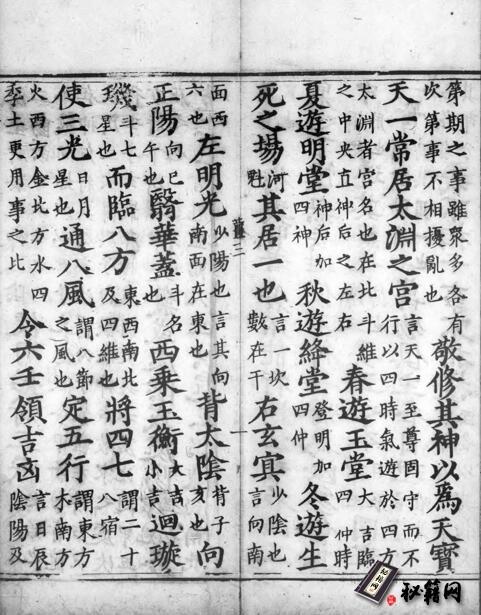 第期之事雖衆多各有次第事不相擾亂也敬修其神以為天寶
天一常居太淵之宮言天一至尊固守而不行以四時氣遊於四方
太淵者宮名也在北斗維之中央直神后之左右春遊玉堂大吉臨四仲時
夏遊明堂神后加四神秋遊絳堂登明加四仲冬遊生
死之場河魁其居一也言一坎數在干右玄冥少陰也言向南
面西六也左明光少陽也言其向南面在東也背太陰背子亥也向
正陽向巳午也翳華蓋斗名也西乘玉衡大吉小吉迴璇
璣斗七星也而臨八方東西南北及四維也將四七謂二十八宿
使三光日月星也通八風謂八節之風也定五行謂東方木南方
火西方金北方水四季土更用事之比今六壬領吉凶言日辰陰陽及
秘籍网